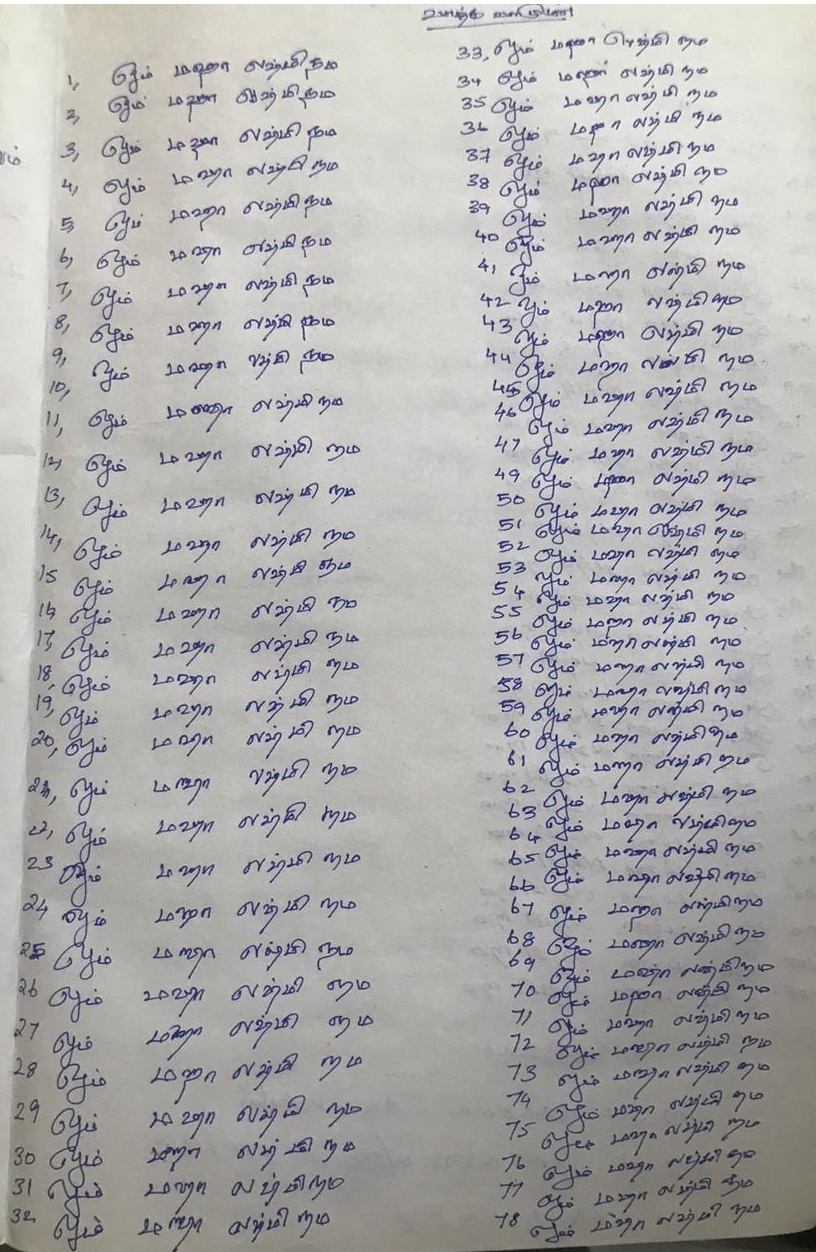 1, ஓம் மஹா லஷ்மி நம
2, ஓம் மஹா லஷ்மி நம
3, ஓம் மஹா லஷ்மி நம
4, ஓம் மஹா லஷ்மி நம
5, ஓம் மஹா லஷ்மி நம
6, ஓம் மஹா லஷ்மி நம
7, ஓம் மஹா லஷ்மி நம
8, ஓம் மஹா லஷ்மி நம
9,
10, ஓம் மஹா லஷ்மி நம
11, ஓம் மஹா லஷ்மி நம
12, ஓம் மஹா லஷ்மி நம
13, ஓம் மஹா லஷ்மி நம
14, ஓம் மஹா லஷ்மி நம
15 ஓம் மஹா லஷ்மி நம
16 ஓம் மஹா லஷ்மி நம
17, ஓம் மஹா லஷ்மி நம
18, ஓம் மஹா லஷ்மி நம
19, ஓம் மஹா லஷ்மி நம
20, ஓம் மஹா லஷ்மி நம
21, ஓம் மஹா லஷ்மி நம
22, ஓம் மஹா லஷ்மி நம
23 ஓம் மஹா லஷ்மி நம
24 ஓம் மஹா லஷ்மி நம
25 ஓம் மஹா லஷ்மி நம
26 ஓம் மஹா லஷ்மி நம
27 ஓம் மஹா லஷ்மி நம
28 ஓம் மஹா லஷ்மி நம
29 ஓம் மஹா லஷ்மி நம
30 ஓம் மஹா லஷ்மி நம
31 ஓம் மஹா லஷ்மி நம
32 ஓம் மஹா லஷ்மி நம
33, ஓம் மஹா லஷ்மி நம
34 ஓம் மஹா லஷ்மி நம
35 ஓம் மஹா லஷ்மி நம
36 ஓம் மஹா லஷ்மி நம
37 ஓம் மஹா லஷ்மி நம
38 ஓம் மஹா லஷ்மி நம
39 ஓம் மஹா லஷ்மி நம
40 ஓம் மஹா லஷ்மி நம
41 ஓம் மஹா லஷ்மி நம
42 ஓம் மஹா லஷ்மி நம
43 ஓம் மஹா லஷ்மி நம
44 ஓம் மஹா லஷ்மி நம
45 ஓம் மஹா லஷ்மி நம
46 ஓம் மஹா லஷ்மி நம
47 ஓம் மஹா லஷ்மி நம
49 ஓம் மஹா லஷ்மி நம
50 ஓம் மஹா லஷ்மி நம
51 ஓம் மஹா லஷ்மி நம
52 ஓம் மஹா லஷ்மி நம
53 ஓம் மஹா லஷ்மி நம
54 ஓம் மஹா லஷ்மி நம
55 ஓம் மஹா லஷ்மி நம
56 ஓம் மஹா லஷ்மி நம
57 ஓம் மஹா லஷ்மி நம
58 ஓம் மஹா லஷ்மி நம
59 ஓம் மஹா லஷ்மி நம
60 ஓம் மஹா லஷ்மி நம
61 ஓம் மஹா லஷ்மி நம
62 ஓம் மஹா லஷ்மி நம
63 ஓம் மஹா லஷ்மி நம
64 ஓம் மஹா லஷ்மி நம
65 ஓம் மஹா லஷ்மி நம
66 ஓம் மஹா லஷ்மி நம
67 ஓம் மஹா லஷ்மி நம
68 ஓம் மஹா லஷ்மி நம
69 ஓம் மஹா லஷ்மி நம
70 ஓம் மஹா லஷ்மி நம
71 ஓம் மஹா லஷ்மி நம
72 ஓம் மஹா லஷ்மி நம
73 ஓம் மஹா லஷ்மி நம
74 ஓம் மஹா லஷ்மி நம
75 ஓம் மஹா லஷ்மி நம
76 ஓம் மஹா லஷ்மி நம
77 ஓம் மஹா லஷ்மி நம
78 ஓம் மஹா லஷ்மி நம